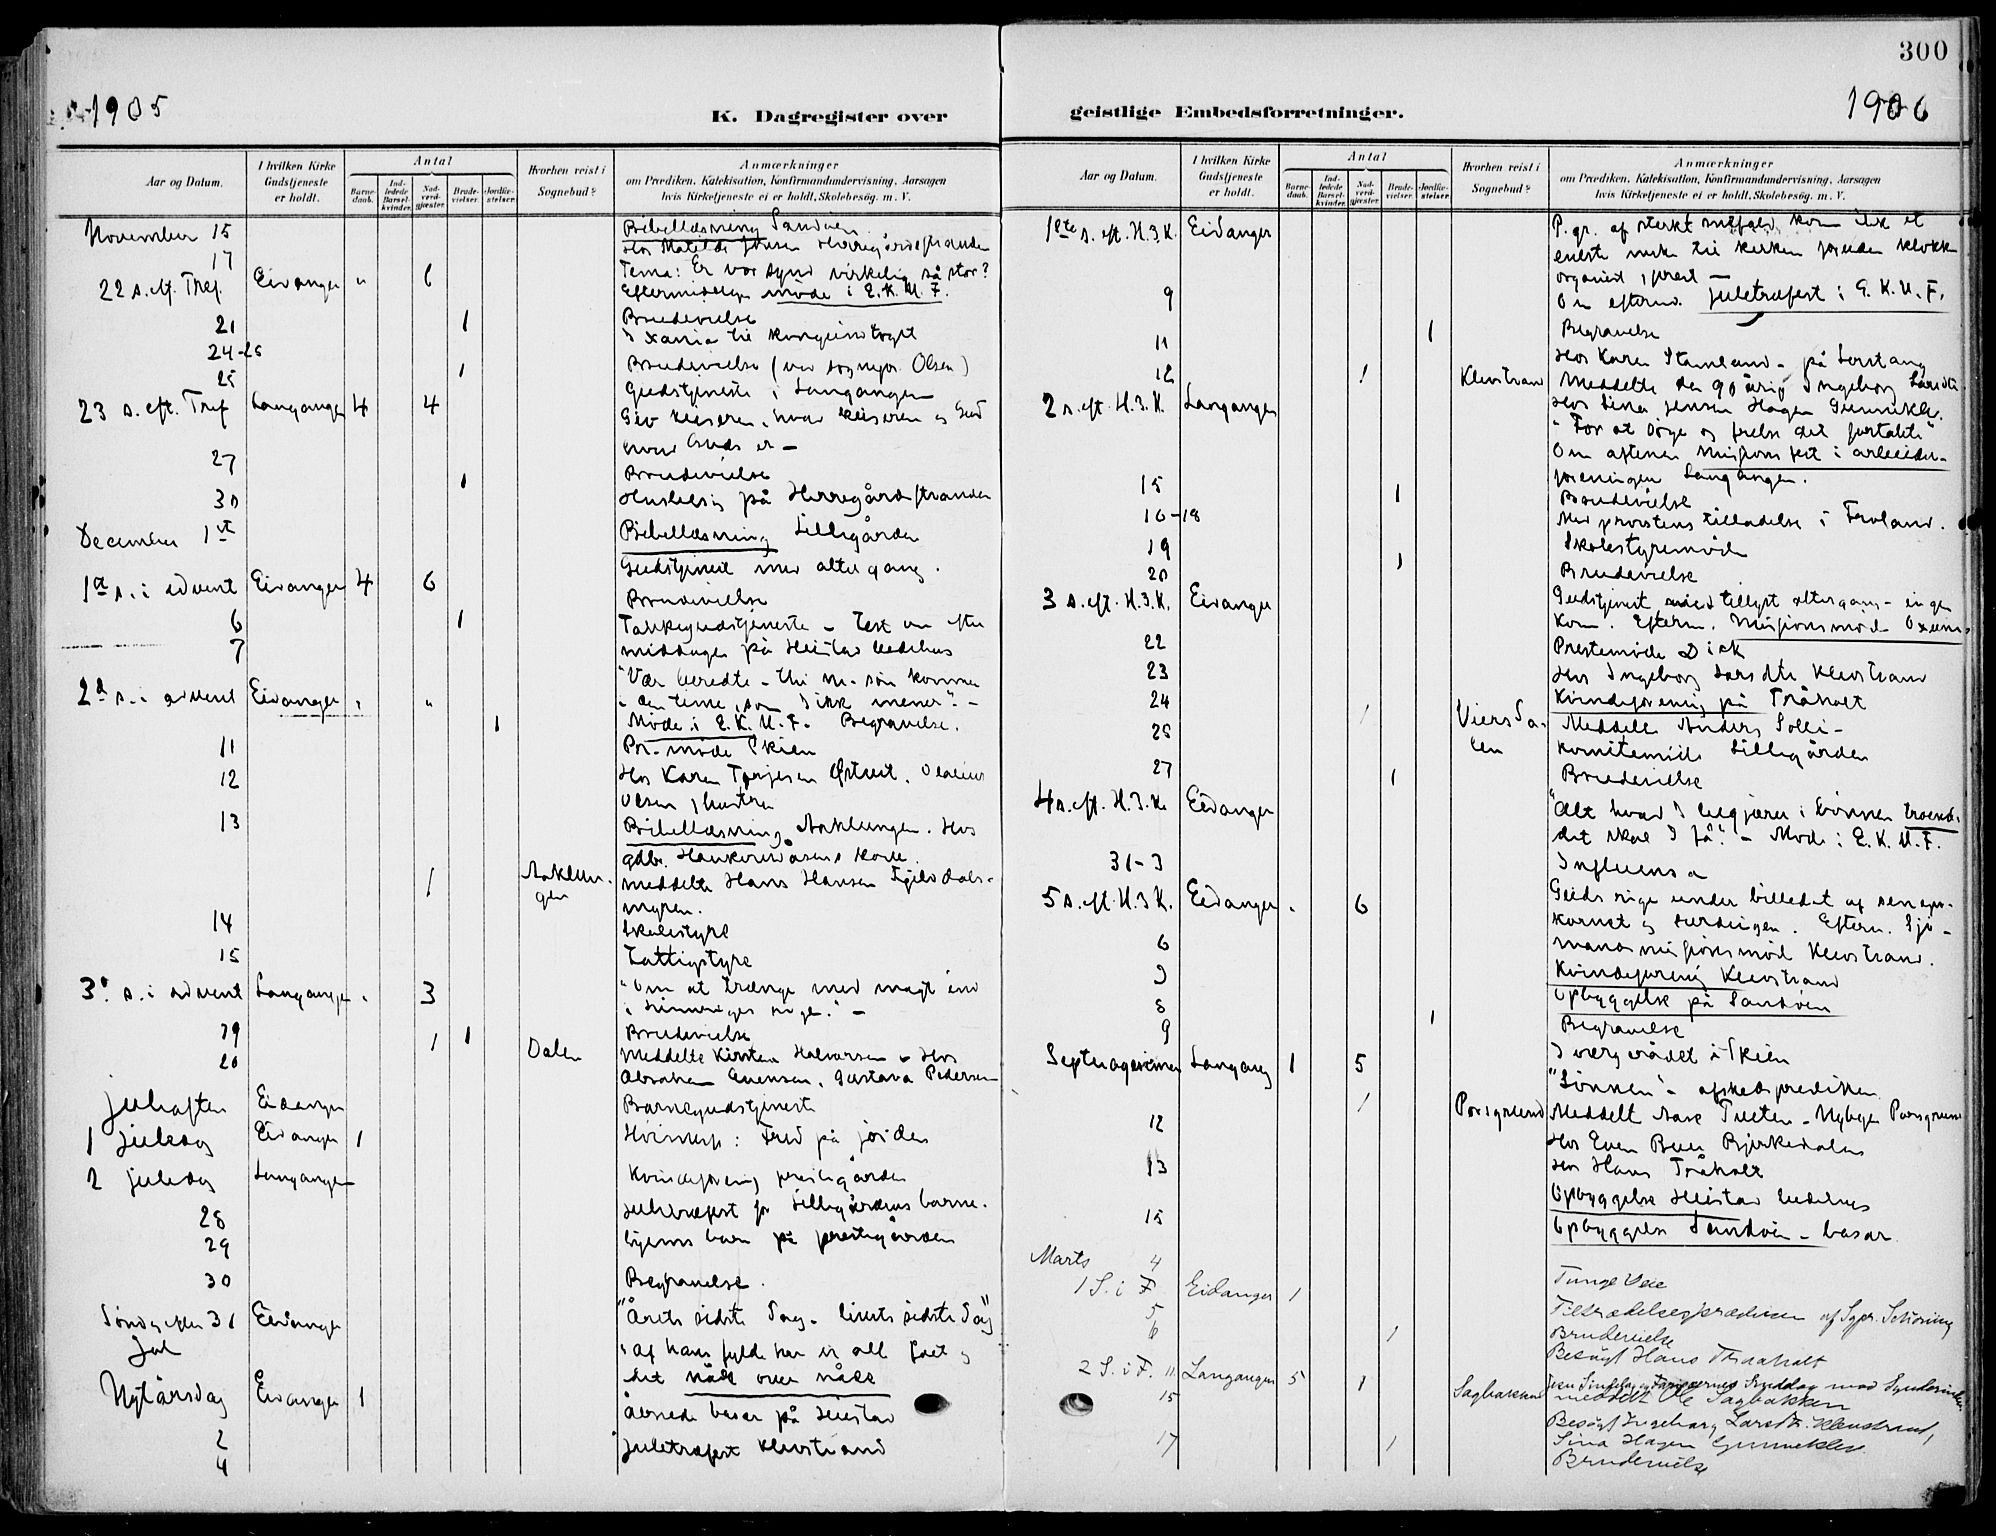 300
1905
K. Dagregister over
geistlige Embedsforretninger.
1906
Aar og Datum.
I hvilken Kirke Gudstjeneste er holdt.
Antal
Barne-daab.
Ind-ledede Barsel-kvinder.
Nad-verd-gjæster.
Brude-vielser.
Jordfæ-stelser.
Hvorhen reist i Sognebud?
Anmærkninger
om Prædiken, Katekisation, Konfirmandundervisning, Aarsagen
hvis Kirketjeneste ei er holdt, Skolebesøg. m. V.
November 15 Bibellæsning Sandøen
17 Hos Matilde Jensen Herregårdsstranden
22 s. eft. Tref. Eidanger " 6 Tema: Er vor synd virkelig så stor?
Eftermiddagen møde i E.K.U.F.
21 1 Brudevielse
24-26 I Xania til kongeindtoget
25 1 Brudevielse (ved sognepr. Olsen)
23 s. eft. Tref Langangen 4 4 Gudstjeneste i Langangen
Giv keiseren, hvad keiserens og Gud
hvad Guds er -
27 1 Brudevielse
30 Husbesøg på Herregårdsstranden
December 1st Bibellæsning Lillegården
1st s. i advent Eidanger 4 6 Gudstjenest med altergang.
6 1 Brudevielse
7 Takkegudstjeneste - Test om efter
middagen på Heistad bedehus
2d s. i advent Eidanger " " "Vær beredte - thi m. søn kommer
i den time, som I ikke mener" -
1 Møde i E.K.U.F. Begravelse.
11 Pr. møde Skien
12 Hos Karen Torjesen Østvet.
Olsen, hustru
13 Bibellæsning Aaklungen. Hos
gdbr.
Aaklun-gen 1 meddelte Hans Hansen
myren.
14 Skolestyre
15 Fattigstyre
3. s. i advent Langangen " 3 "Om at trænge med magt ind
i himmeriges rige." -
19 1 Brudevielse
20 1 Dalen Meddelte Kirsten Halvorsen - Hos
Abraham Evensen, Gustava Pedersen
Juleaften Eidanger Barnegudstjeneste
1 Juledag Eidanger 1 Høimesse: Fred på jorden
2 juledag Langangen
Kvindeforening prestegården
28 Juletræfest for Lillegårdens barne-
29 hjems barn på prestegården
30 Begravelse.
Søndag efter Jul 31 Eidanger "Årets sidste dag - livets sidste dag"
"Af hans fylde har vi all fået og
det nåde over nåde
Nytårsdag Eidanger 1
2 Åbnede basar på Heistad
4 Juletræfest Klevstrand
Aar og Datum.
I hvilken Kirke Gudstjeneste er holdt.
Antal
Barne-daab.
Ind-ledede Barsel-kvinder.
Nad-verd-gjæster.
Brude-vielser.
Jordfæ-stelser.
Hvorhen reist i Sognebud?
Anmærkninger
om Prædiken, Katekisation, Konfirmandundervisning, Aarsagen
hvis Kirketjeneste ei er holdt, Skolebesøg. m. V.
1ste s. eft. H.3.K. Eidanger P. gr. af sterkt snefald kom ikke et
eneste menneske til kirken foruden klokker
organist, prest -
9 Om efterm. juletræfest i E.K.U.F.
11 1 Begravelse
Hos Karen Stamland - på Lerstang
12 1 Klevstrand Meddelte den 90 årig Ingeborg Larsdtr
2 s. eft. H.3.K. Langangen Hos Sina Jensen Hagen Gunnekle.
"For at søge og frelse det fortabte"
Om aftenen missionsfest i arbeider-
foreningen Langangen.
15 1 Brudevielse
16-18 Med provstens tilladelse i Froland.
19 Skolestyremøde
20 1 Brudevielse
3 s. eft. H.3.K. Eidanger Gudstjenest med tillyst altergang - ingen
kom. Efterm. missionsmøde
22 Prestemøde Dick
23 Hos Ingeborg Larsdtr Klevstrand
24 Kvindeforening på Tråholt
25 1 Viersdalen Meddelt Anders Solli -
komitemøde Lillegården
27 1 Brudevielse
4 s. eft. H.3.K. Eidanger "Alt hvad I begjærer i bønnen troende,
det skal I få" - Møde i E.K.U.F.
31-3 Influensa
5 s. eft. H.3.K. Eidanger " 6 Guds rige under billedet af seneps-
kornet og surdeigen. Efterm. Sjø-
6 mandsmissionsmøde Klevstrand.
Kvindeforening Klevstrand
8 Opbyggelse på Sandøen
9 1 Begravelse
I vergerådet i Skien
Septuagesima Langang 1 5 "Sønnen" - afskedsprediken
1 Porsgrund Meddelt Aase Tveten - Nybye Porsgrund
12 Hos Even Buer Bjerkedalen
13 Hos Hans Tråholt
Opbyggelse Heistad bedehus
15 Opbyggelse Sandøen - basar
Marts 4
1 S. i F. Eidanger 1 Tunge Veie
5 Tiltrædelsesprædiken af Sgpr. Schiøning
6 1 Brudevielse
Besøgt Hans Traaholt
2 S. i F. 11 Langangen 5
15 1 Sagbakken meddelt Ole Sagbakken
Besøgt Ingeborg Larsdtr. Klevstrand,
Sina Hagen Gunnekleo
17 1 Brudevielse